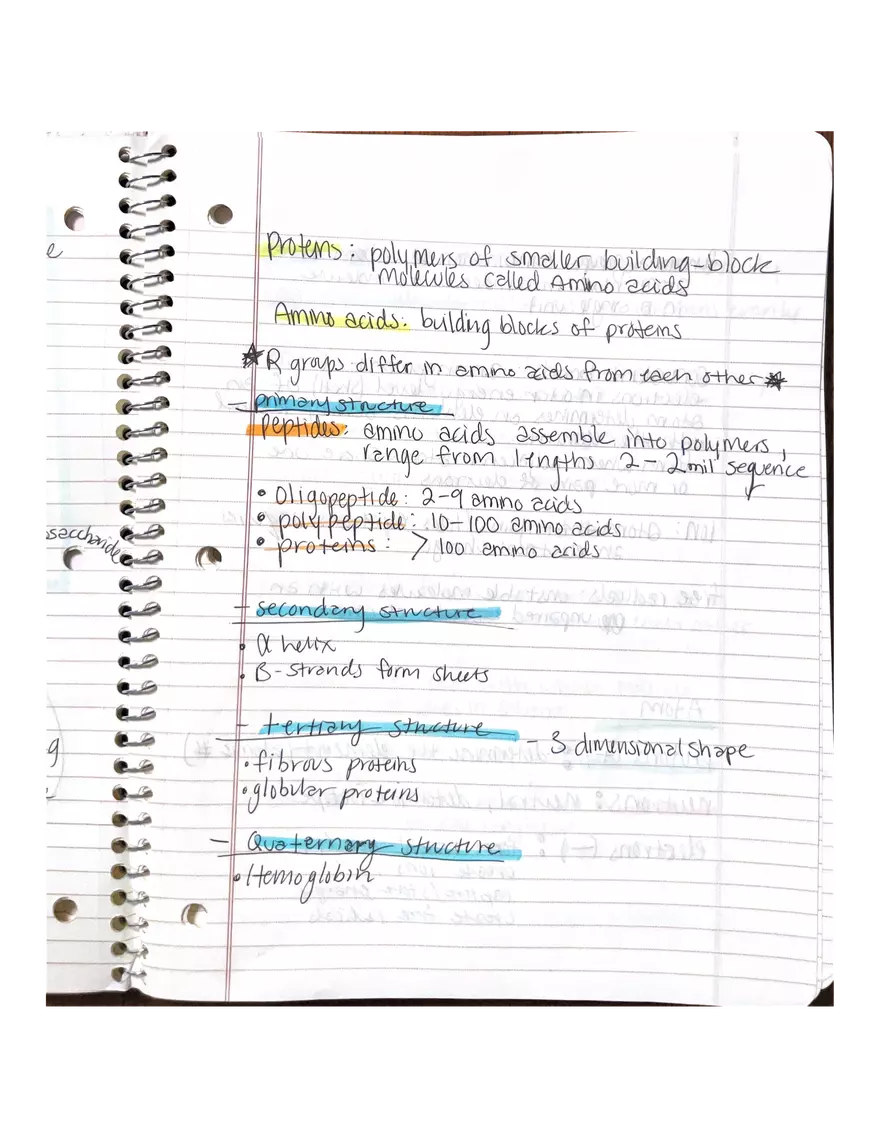 Proteins: polymers of smaller building-block
molecules called Amino acids
Amino acids: building blocks of proteins
★ R groups differ in amino acids from each other ★
- primary structure
peptides: amino acids assemble into polymers,
range from lengths 2-2mil sequence
• Oligopeptide: 2-9 amino acids
• polypeptide: 10-100 amino acids
• proteins: > 100 amino acids
- secondary structure
• α helix
• B-strands form sheets
- tertiary structure - 3 dimensional shape
• fibrous proteins
• globular proteins
- Quaternary structure
• Hemoglobin
e
saccharide
g